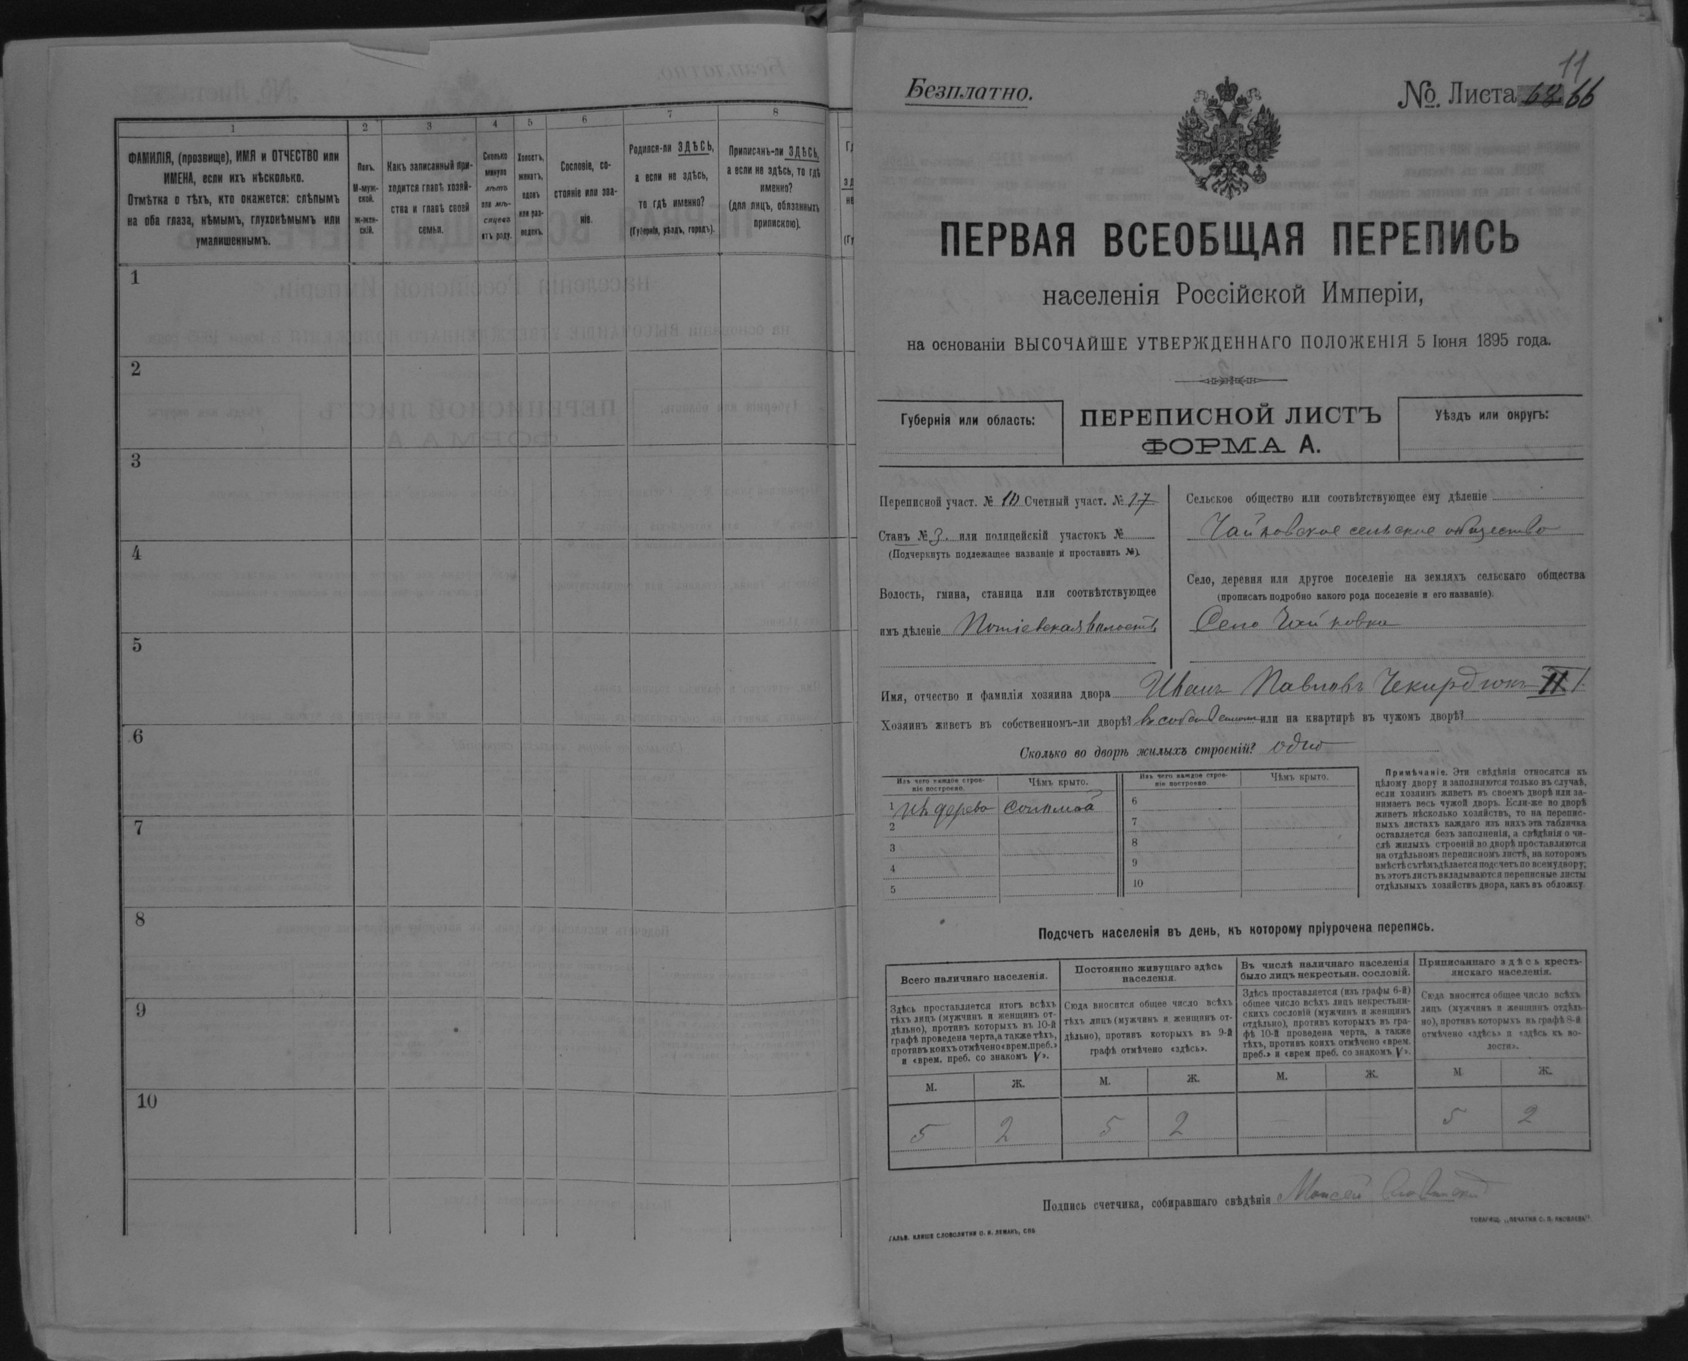 1
2
3
4
5
6
7
8
ФАМИЛІЯ, (прозвище), ИМЯ и ОТЧЕСТВО или
ИМЕНА, если ихъ нѣсколько.
Отмѣтка о тѣхъ, кто окажется: слѣпымъ
на оба глаза, нѣмымъ, глухонѣмымъ или
умалишеннымъ.
Полъ.
М-муж-
ской.
ж-жен-
скій.
Какъ записанный при-
ходится главѣ хозяй-
ства и главѣ своей
семьи.
Сколько
минуло
лѣтъ
или мѣ-
сяцевъ
отъ роду.
Холостъ,
женатъ,
вдовъ
или раз-
веденъ.
Сословіе, со-
стояніе или зва-
ніе.
Родился-ли ЗДѢСЬ,
а если не здѣсь,
то гдѣ именно?
(Губернія, уѣздъ, городъ).
Приписанъ-ли ЗДѢСЬ,
а если не здѣсь, то гдѣ
именно?
(для лицъ, обязанныхъ
припискою).
1
2
3
4
5
6
7
8
9
10
11
Безплатно.
№ Листа 66
ПЕРВАЯ ВСЕОБЩАЯ ПЕРЕПИСЬ
населенія Россійской Имперіи,
на основаніи ВЫСОЧАЙШЕ УТВЕРЖДЕННАГО ПОЛОЖЕНІЯ 5 Іюня 1895 года.
Губернія или область:
ПЕРЕПИСНОЙ ЛИСТЪ
ФОРМА А.
Уѣздъ или округъ:
Переписной участ. № 10 Счетный участ. № 17
Станъ № 3. или полицейскій участокъ №
(Подчеркнуть подлежащее названіе и проставить №).
Волость, гмина, станица или соотвѣтствующее
имъ дѣленіе Потіевская волость
Сельское общество или соотвѣтствующее ему дѣленіе
Чайковское сельское общество
Село, деревня или другое поселеніе на земляхъ сельскаго общества
(прописать подробно какого рода поселеніе и его названіе).
Село Чайковка
Имя, отчество и фамилія хозяина двора Иванъ Павловъ Чекирдюкъ II
Хозяинъ живетъ въ собственномъ-ли дворѣ? въ собственномъ или на квартирѣ въ чужомъ дворѣ?
Сколько во дворѣ жилыхъ строеній? одно
Изъ чего каждое строе-
ніе построено.
Чѣмъ крыто.
Изъ чего каждое строе-
ніе построено.
Чѣмъ крыто.
1 Изъ дерева соломой
2
3
4
5
6
7
8
9
10
Примѣчаніе. Эти свѣдѣнія относятся къ
цѣлому двору и заполняются только въ случаѣ,
если хозяинъ живетъ въ своемъ дворѣ или за-
нимаетъ весь чужой дворъ. Если-же во дворѣ
живетъ нѣсколько хозяйствъ, то на перепис-
ныхъ листахъ каждаго изъ нихъ эта табличка
оставляется безъ заполненія, а свѣдѣнія о чи-
слѣ жилыхъ строеній во дворѣ проставляются
на отдѣльномъ переписномъ листѣ, на которомъ
вмѣстѣ съ тѣмъ дѣлается подсчетъ по всему двору;
въ этотъ листъ вкладываются переписные листы
отдѣльныхъ хозяйствъ двора, какъ въ обложку.
Подсчетъ населенія въ день, къ которому пріурочена перепись.
Всего наличнаго населенія.
Здѣсь проставляется итогъ всѣхъ
тѣхъ лицъ (мужчинъ и женщинъ от-
дѣльно), противъ которыхъ въ 10-й
графѣ проведена черта, а также тѣхъ,
противъ коихъ отмѣчено «врем. преб.»
и «врем. преб. со знакомъ V».
Постоянно живущаго здѣсь
населенія.
Сюда вносится общее число всѣхъ
тѣхъ лицъ (мужчинъ и женщинъ от-
дѣльно), противъ которыхъ въ 9-й
графѣ отмѣчено «здѣсь».
Въ числѣ наличнаго населенія
было лицъ некрестьян. сословій.
Здѣсь проставляется (изъ графы 6-й)
общее число всѣхъ лицъ некрестьян-
скихъ сословій (мужчинъ и женщинъ
отдѣльно), противъ которыхъ въ гра-
фѣ 10-й проведена черта, а также
тѣхъ, противъ коихъ отмѣчено «врем.
преб.» и «врем преб. со знакомъ V».
Приписаннаго здѣсь кресть-
янскаго населенія.
Сюда вносится общее число всѣхъ
лицъ (мужчинъ и женщинъ отдѣль-
но), противъ которыхъ въ графѣ 8-й
отмѣчено «здѣсь» и «здѣсь въ во-
лости».
М. Ж. М. Ж. М. Ж. М. Ж.
5 2 5 2 5 2
Подпись счетчика, собиравшаго свѣдѣнія Моисей
ГАЛЬВ. КЛИШЕ СЛОВОЛИТНИ О. И. ЛЕМАНЪ, СПБ
ТОВАРИЩ. „ПЕЧАТНЯ С. П. ЯКОВЛЕВА“